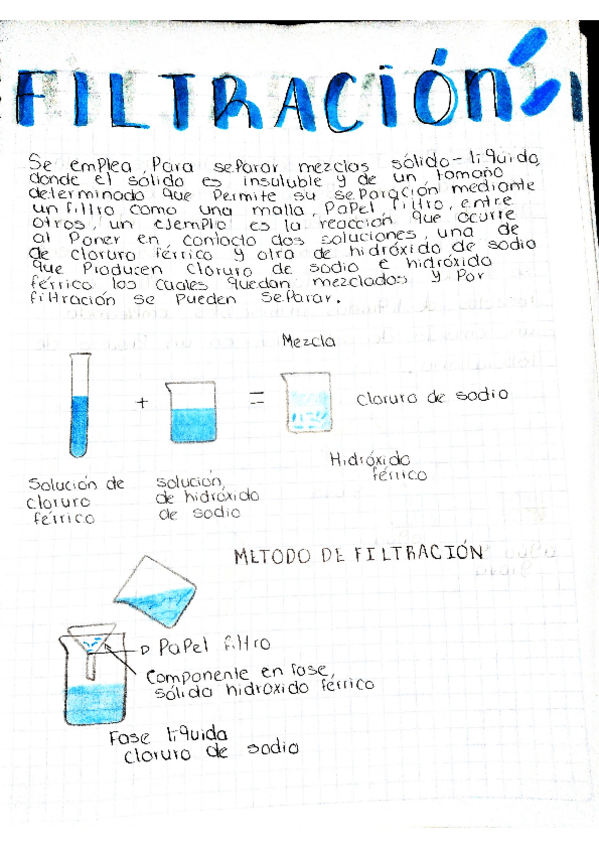 FILTRACIÓN:
Se emplea, Para separar mezclas sólido-liquido,
donde el sólido es insuluble y de un tamaño
determinado que Permite su separación mediante
un filtro como una malla, Papel filtro, entre
otros, un ejemplo es la reacción que ocurre
al Poner en, contacto dos soluciones, una de
de cloruro férrico y otra de hidróxido de sodio
que Producen cloruro de sodio e hidróxido
férrico los cuales quedan mezclados y Por
filtración se Pueden separar.
Mezcla
+ = Cloruro de sodio
Hidróxido
férrico
Solución de
cloruro
férrico
solución,
de hidróxido
de sodio
METODO DE FILTRACIÓN
Papel filtro
Componente en fase,
sólida hidroxido férrico
Fase liquida
cloruro de sodio